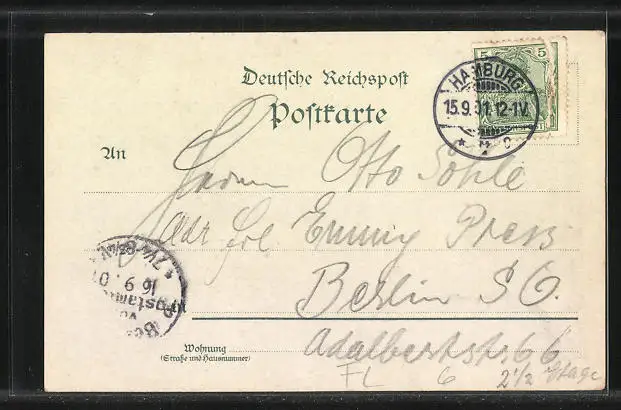 5 5
Deutsche Reichspost
Postkarte
HAMBURG
15.9.01.12-1V.
An
Herrn Otto Söhle
adr Frl. Emmy Press
Berlin SO.
16 9. 01
Wohnung
(Straße und Hausnummer)
Adalbertstr. 66
6 2 1/2 Etage